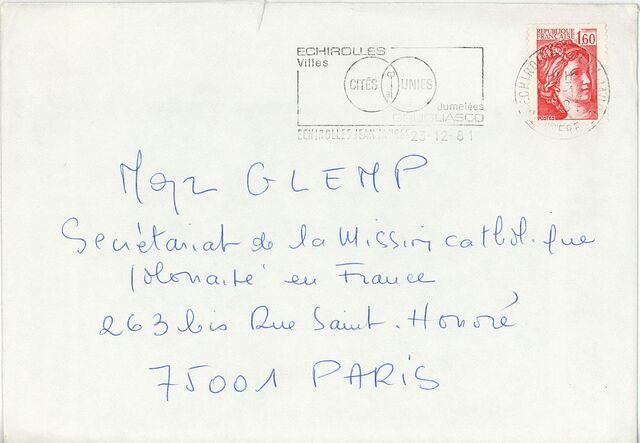 ECHIROLLES
Villes
CITÉS UNIES
Jumelées
GRUGLIASCO
ECHIROLLES JEAN JAURES 23-12-81
REPUBLIQUE
FRANCAISE 1,60
POSTES
ECHIROLLES
ISERE
Mgr GLEMP
Secrétariat de la Mission catholique
Polonaise en France
263 bis Rue Saint-Honoré
75001 PARIS